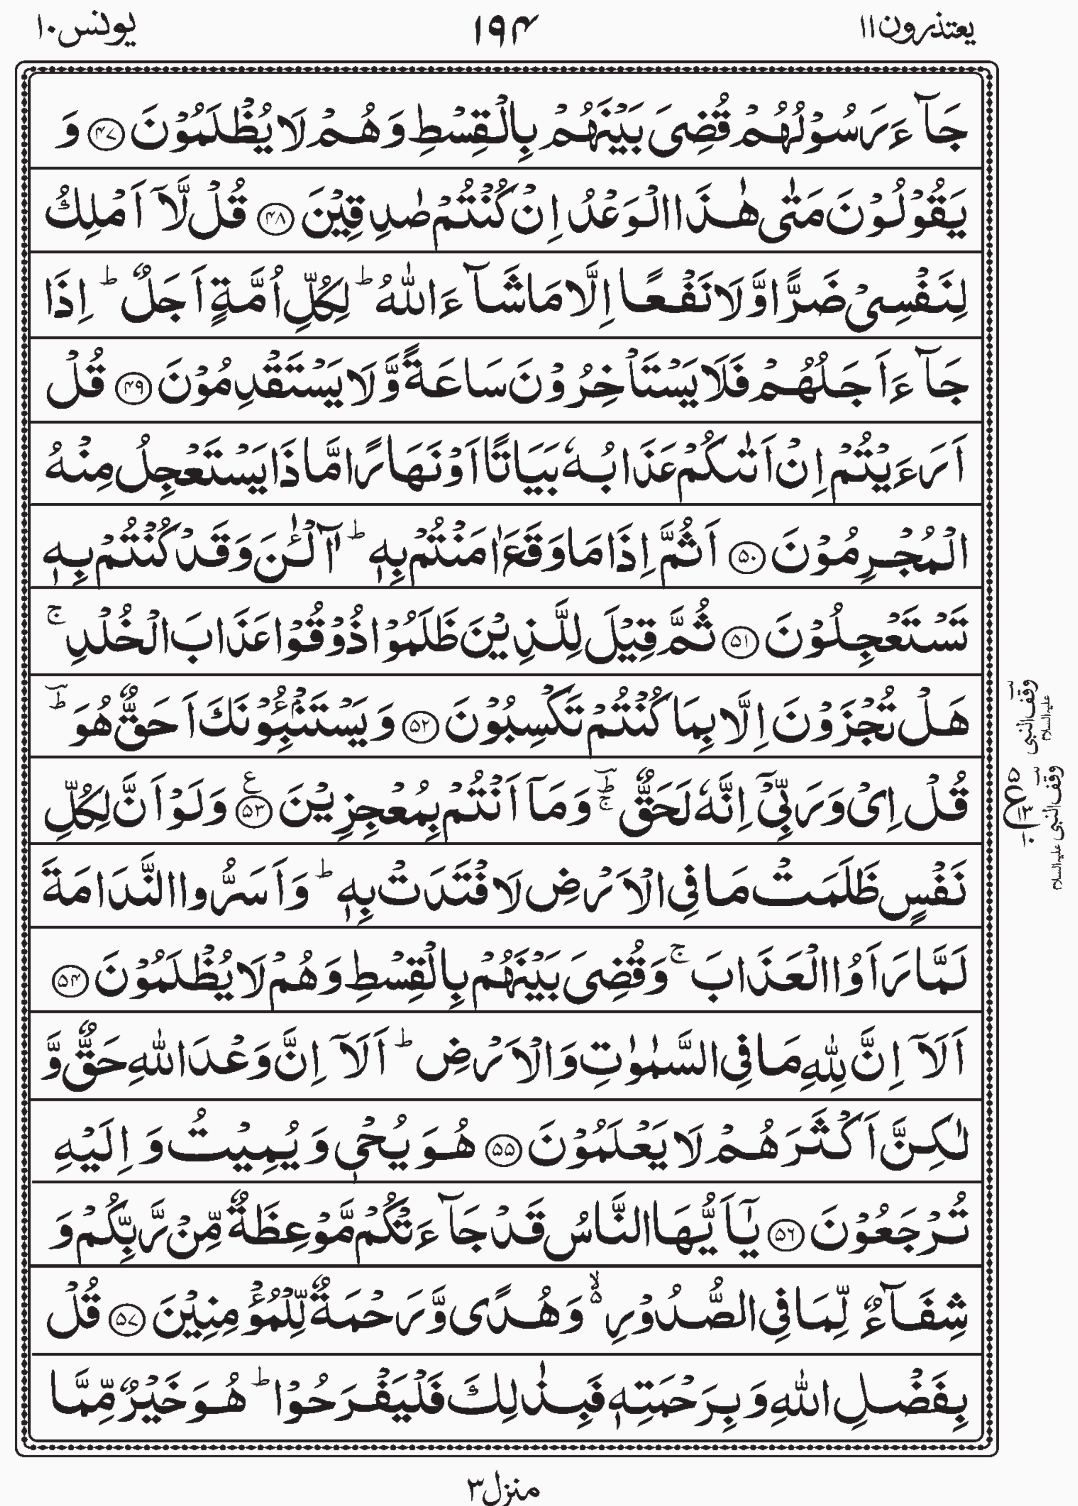 یعتذرون۱۱
۱۹۴
یونس۱۰
جَآءَ رَسُوۡلُهُمۡ قُضِىَ بَيۡنَهُمۡ بِالۡقِسۡطِ وَهُمۡ لَا يُظۡلَمُوۡنَ ﴿۴۷﴾ وَ
يَقُوۡلُوۡنَ مَتٰى هٰذَا الۡوَعۡدُ اِنۡ كُنۡتُمۡ صٰدِقِيۡنَ ﴿۴۸﴾ قُلۡ لَّاۤ اَمۡلِكُ
لِنَفۡسِىۡ ضَرًّا وَّلَا نَفۡعًا اِلَّا مَا شَآءَ اللّٰهُ ؕ لِكُلِّ اُمَّةٍ اَجَلٌ ؕ اِذَا
جَآءَ اَجَلُهُمۡ فَلَا يَسۡتَاۡخِرُوۡنَ سَاعَةً وَّلَا يَسۡتَقۡدِمُوۡنَ ﴿۴۹﴾ قُلۡ
اَرَءَيۡتُمۡ اِنۡ اَتٰٮكُمۡ عَذَابُهٗ بَيَاتًا اَوۡ نَهَارًا مَّاذَا يَسۡتَعۡجِلُ مِنۡهُ
الۡمُجۡرِمُوۡنَ ﴿۵۰﴾ اَثُمَّ اِذَا مَا وَقَعَ اٰمَنۡتُمۡ بِهٖ ؕ آٰلۡــٰٔنَ وَقَدۡ كُنۡتُمۡ بِهٖ
تَسۡتَعۡجِلُوۡنَ ﴿۵۱﴾ ثُمَّ قِيۡلَ لِلَّذِيۡنَ ظَلَمُوۡا ذُوۡقُوۡا عَذَابَ الۡخُلۡدِ ۚ
هَلۡ تُجۡزَوۡنَ اِلَّا بِمَا كُنۡتُمۡ تَكۡسِبُوۡنَ ﴿۵۲﴾ وَيَسۡتَنۡۢبِـُٔوۡنَكَ اَحَقٌّ هُوَ ؕ
قُلۡ اِىۡ وَرَبِّىۡۤ اِنَّهٗ لَحَقٌّ ؔ ؕ ۚ وَمَاۤ اَنۡتُمۡ بِمُعۡجِزِيۡنَ ﴿۵۳﴾ وَلَوۡ اَنَّ لِكُلِّ
نَفۡسٍ ظَلَمَتۡ مَا فِى الۡاَرۡضِ لَافۡتَدَتۡ بِهٖ ؕ وَاَسَرُّوا النَّدَامَةَ
لَمَّا رَاَوُا الۡعَذَابَ ۚ وَقُضِىَ بَيۡنَهُمۡ بِالۡقِسۡطِ وَهُمۡ لَا يُظۡلَمُوۡنَ ﴿۵۴﴾
اَلَاۤ اِنَّ لِلّٰهِ مَا فِى السَّمٰوٰتِ وَالۡاَرۡضِ ؕ اَلَاۤ اِنَّ وَعۡدَ اللّٰهِ حَقٌّ وَّ
لٰـكِنَّ اَكۡثَرَهُمۡ لَا يَعۡلَمُوۡنَ ﴿۵۵﴾ هُوَ يُحۡىٖ وَيُمِيۡتُ وَاِلَيۡهِ
تُرۡجَعُوۡنَ ﴿۵۶﴾ يٰۤاَيُّهَا النَّاسُ قَدۡ جَآءَتۡكُمۡ مَّوۡعِظَةٌ مِّنۡ رَّبِّكُمۡ وَ
شِفَآءٌ لِّمَا فِى الصُّدُوۡرِ ۙ وَهُدًى وَّرَحۡمَةٌ لِّلۡمُؤۡمِنِيۡنَ ﴿۵۷﴾ قُلۡ
بِفَضۡلِ اللّٰهِ وَبِرَحۡمَتِهٖ فَبِذٰلِكَ فَلۡيَفۡرَحُوۡا ؕ هُوَ خَيۡرٌ مِّمَّا
وقف النبی علیہ السلام
وقف النبی علیہ السلام
منزل۳